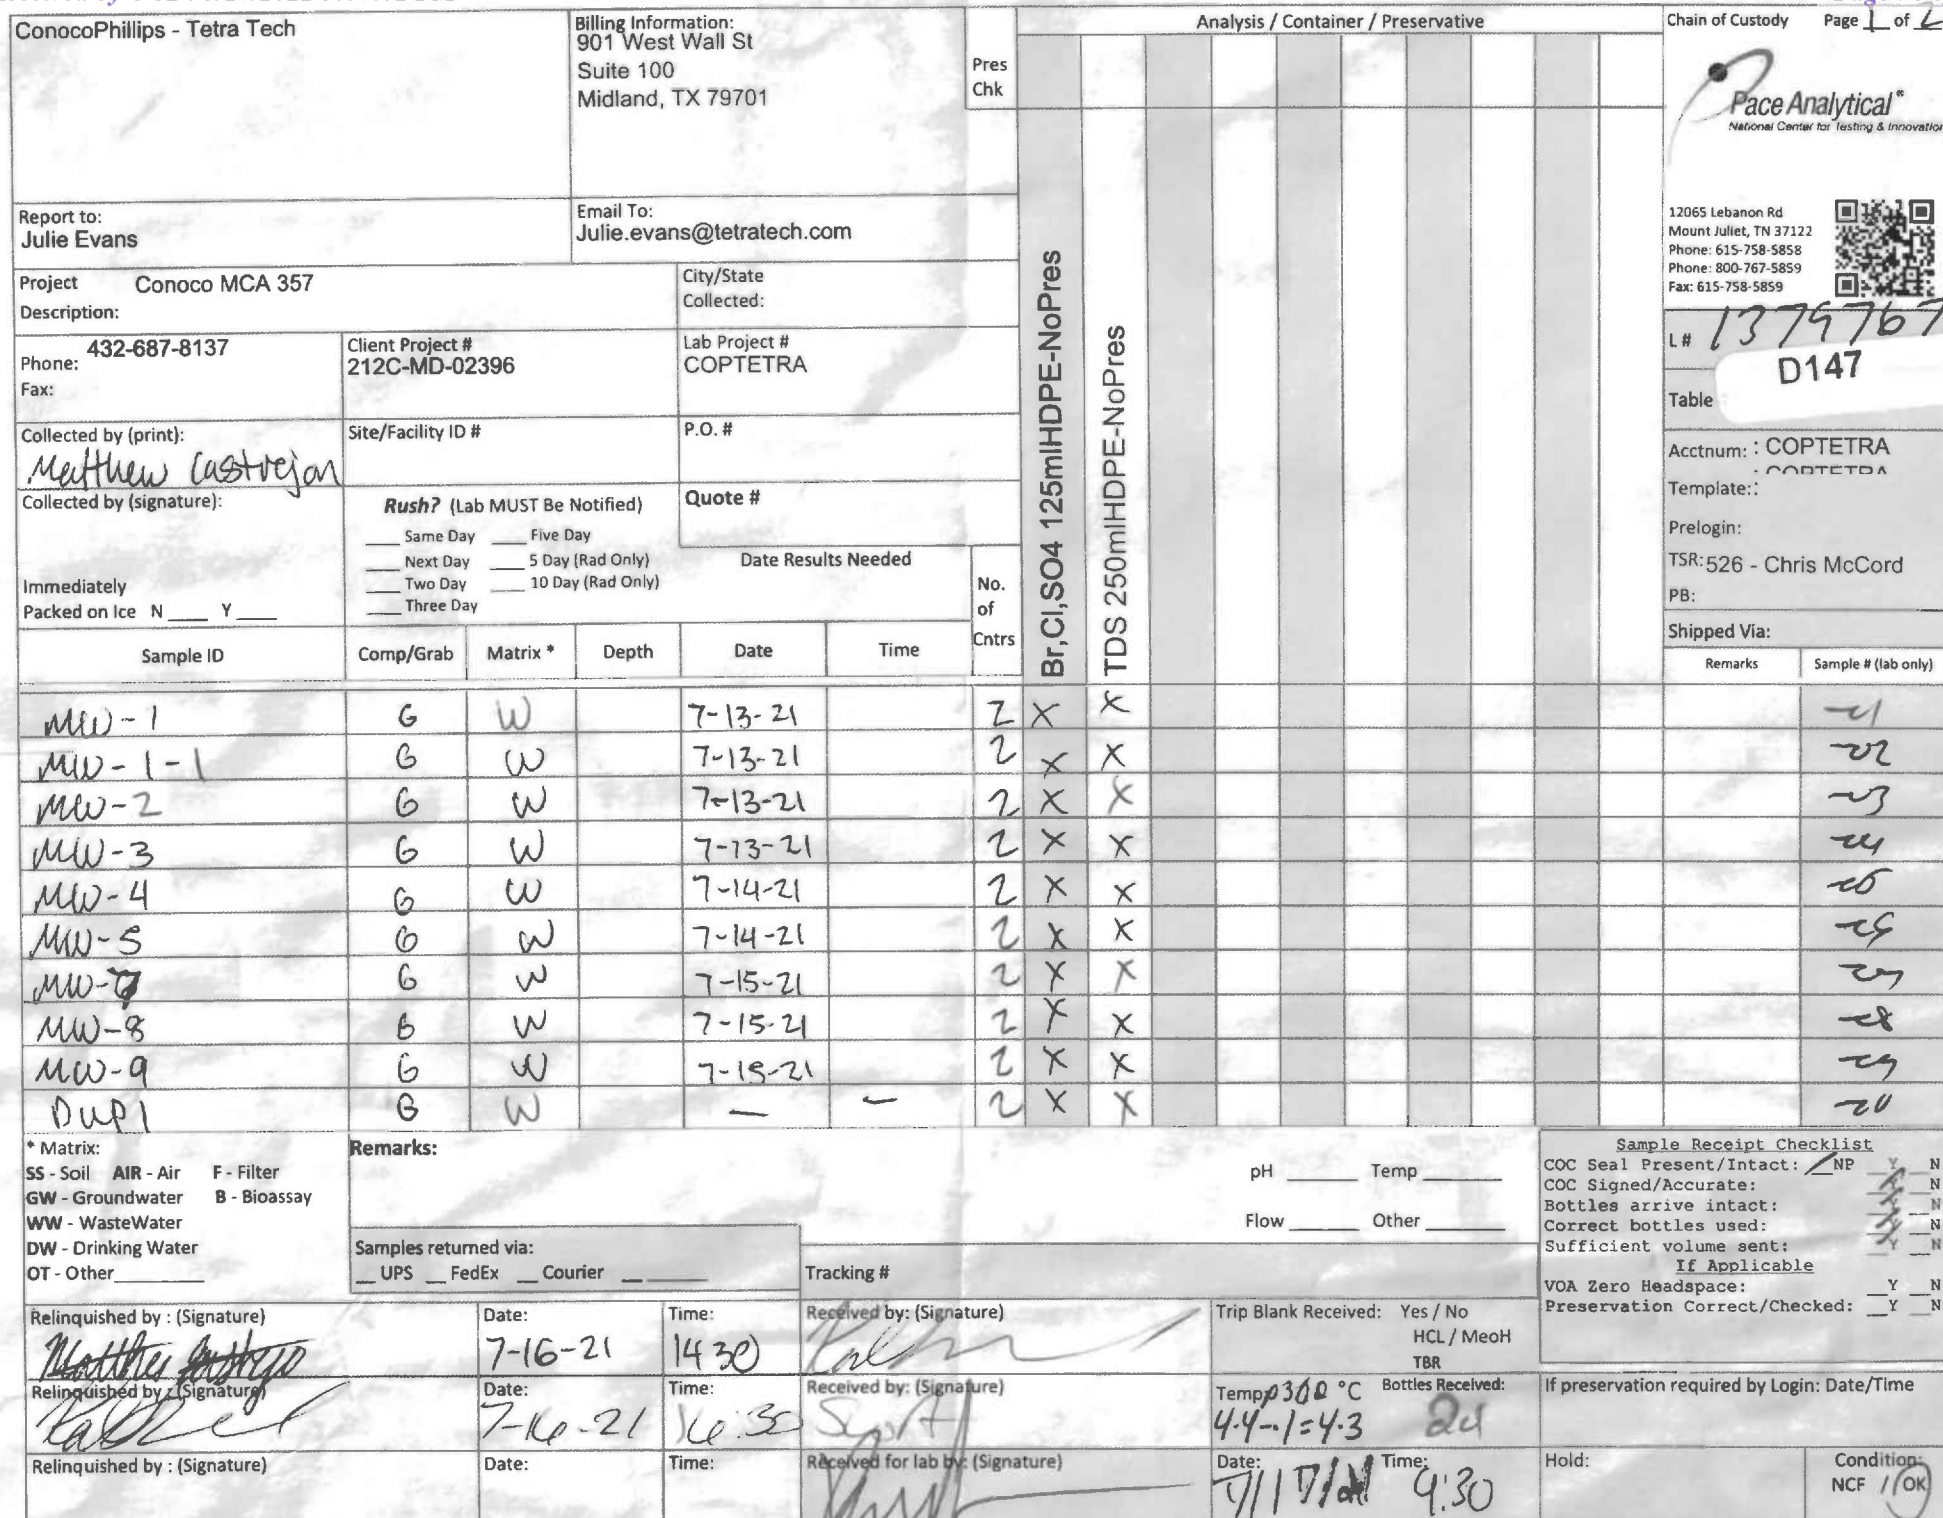 ConocoPhillips - Tetra Tech
Billing Information:
901 West Wall St
Suite 100
Midland, TX 79701
Pres
Chk
Analysis / Container / Preservative
Chain of Custody Page 1 of 2
Pace Analytical®
National Center for Testing & Innovation
12065 Lebanon Rd
Mount Juliet, TN 37122
Phone: 615-758-5858
Phone: 800-767-5859
Fax: 615-758-5859
Report to:
Julie Evans
Email To:
Julie.evans@tetratech.com
Project Description: Conoco MCA 357
City/State
Collected:
Phone: 432-687-8137
Fax:
Client Project #
212C-MD-02396
Lab Project #
COPTETRA
L# 1379767
D147
Table
Collected by (print):
Matthew Castrejon
Site/Facility ID #
P.O. #
Acctnum: : COPTETRA
: COPTETRA
Template::
Prelogin:
TSR: 526 - Chris McCord
PB:
Shipped Via:
Collected by (signature):
Rush? (Lab MUST Be Notified)
___ Same Day ___ Five Day
___ Next Day ___ 5 Day (Rad Only)
___ Two Day ___ 10 Day (Rad Only)
___ Three Day
Quote #
Date Results Needed
Immediately
Packed on Ice N ___ Y ___
No.
of
Cntrs
Br,Cl,SO4 125mlHDPE-NoPres
TDS 250mlHDPE-NoPres
Sample ID Comp/Grab Matrix * Depth Date Time Remarks Sample # (lab only)
MW-1 G W 7-13-21 2 X X -01
MW-1-1 G W 7-13-21 2 X X -02
MW-2 G W 7-13-21 2 X X -03
MW-3 G W 7-13-21 2 X X -04
MW-4 G W 7-14-21 2 X X -05
MW-5 G W 7-14-21 2 X X -06
MW-7 G W 7-15-21 2 X X -07
MW-8 G W 7-15-21 2 X X -08
MW-9 G W 7-15-21 2 X X -09
DUP1 G W — — 2 X X -10
* Matrix:
SS - Soil AIR - Air F - Filter
GW - Groundwater B - Bioassay
WW - WasteWater
DW - Drinking Water
OT - Other
Remarks:
pH ___ Temp ___
Flow ___ Other ___
Samples returned via:
__ UPS __ FedEx __ Courier __
Tracking #
Sample Receipt Checklist
COC Seal Present/Intact: __NP __Y __N
COC Signed/Accurate: __N
Bottles arrive intact: __N
Correct bottles used: __N
Sufficient volume sent: Y __N
If Applicable
VOA Zero Headspace: __Y __N
Preservation Correct/Checked: __Y __N
Relinquished by : (Signature)
Date:
7-16-21
Time:
1430
Received by: (Signature)
Trip Blank Received: Yes / No
HCL / MeoH
TBR
Relinquished by : (Signature)
Date:
7-16-21
Time:
16:30
Received by: (Signature)
Temp °C
4.4-.1=4.3
Bottles Received:
If preservation required by Login: Date/Time
Relinquished by : (Signature)
Date:
Time:
Received for lab by: (Signature)
Date:
7/17/21
Time:
9:30
Hold:
Condition:
NCF / OK